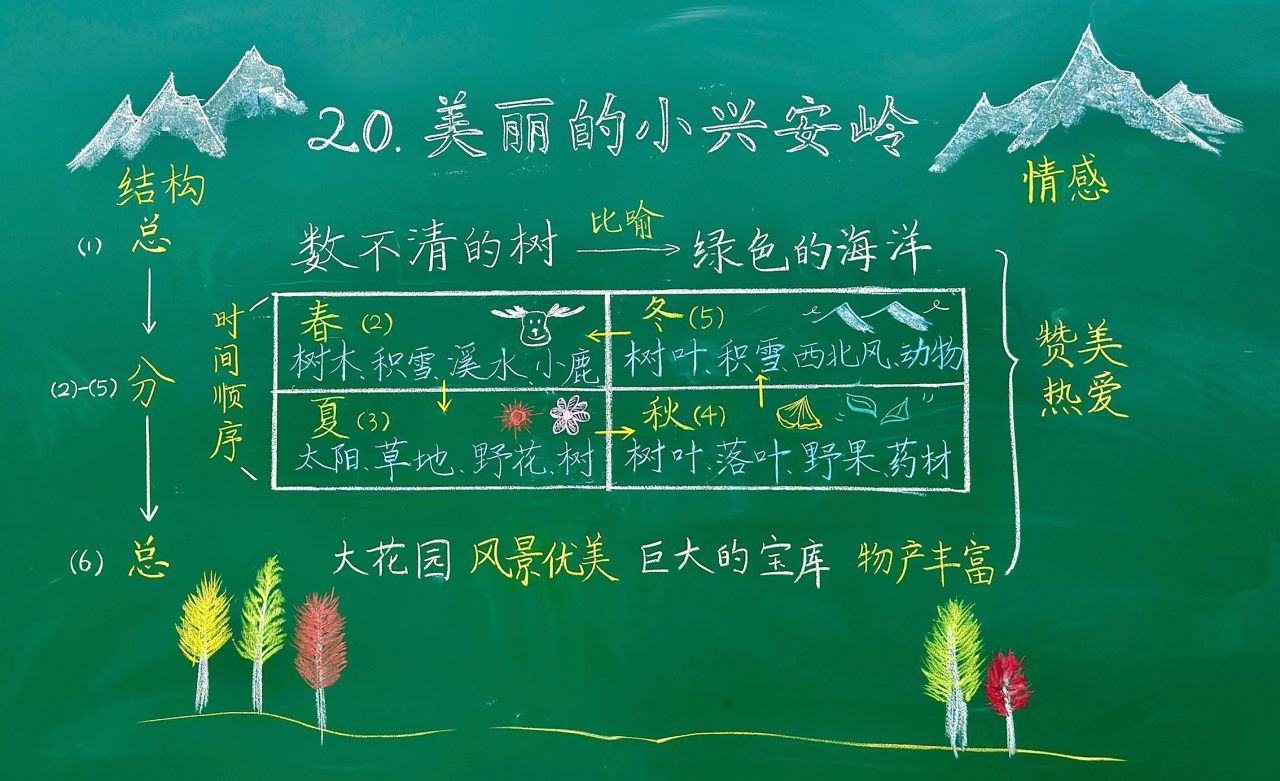 20.美丽的小兴安岭
结构
情感
(1) 总
数不清的树 比喻 绿色的海洋
时间顺序
春(2)
树木、积雪、溪水、小鹿
冬(5)
树叶、积雪、西北风、动物
(2)-(5) 分
夏(3)
太阳、草地、野花、树
秋(4)
树叶、落叶、野果、药材
赞美
热爱
(6) 总
大花园 风景优美 巨大的宝库 物产丰富